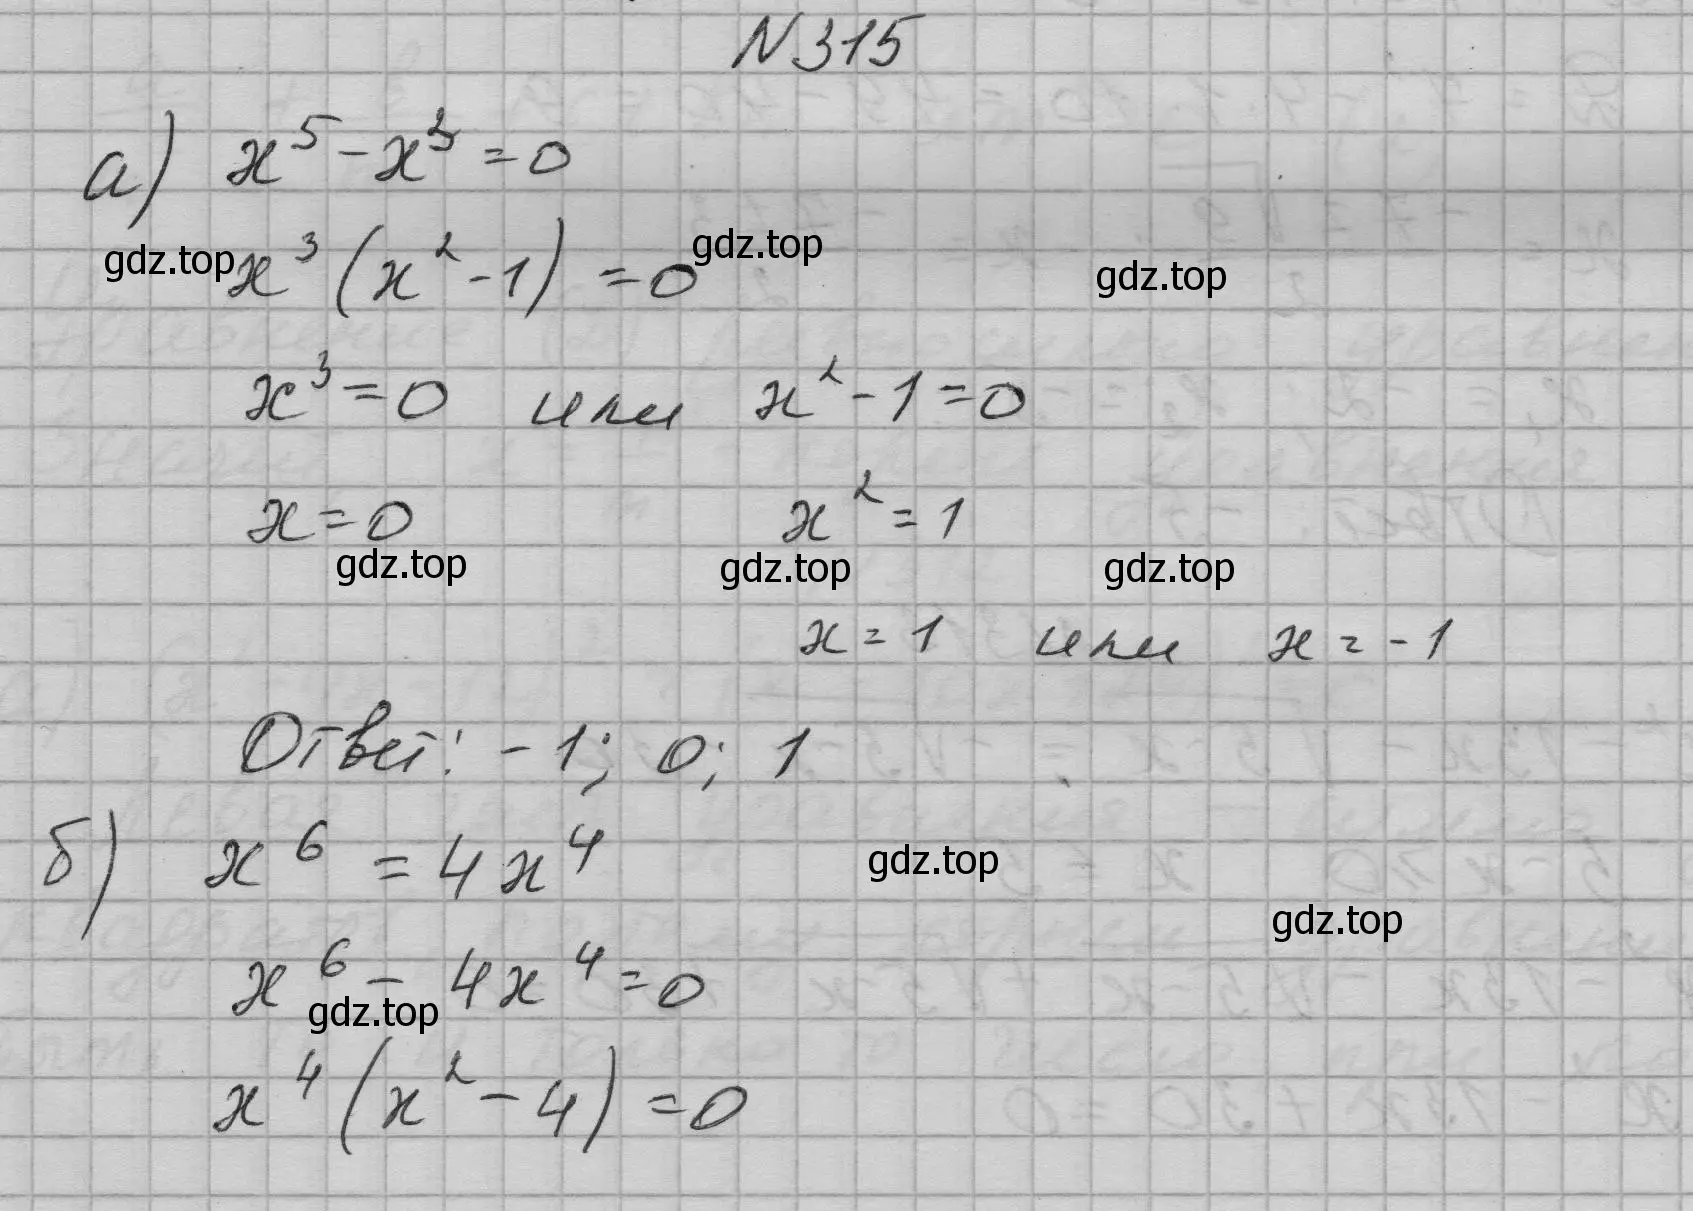 N 315
а) x⁵ - x³ = 0
gdz.top
gdz.top
gdz.top
x³ (x² - 1) = 0
x³ = 0 или x² - 1 = 0
x = 0 x² = 1
gdz.top
gdz.top
gdz.top
x = 1 или x = -1
Ответ: -1; 0; 1
б) x⁶ = 4x⁴
gdz.top
gdz.top
x⁶ - 4x⁴ = 0
gdz.top
x⁴ (x² - 4) = 0